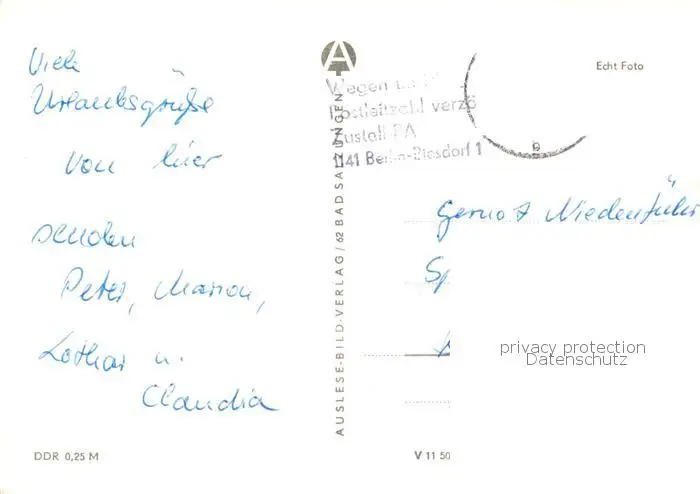 Viele
Urlaubsgrüße
von hier
senden
Peter, Marion,
Lothar u.
Claudia
DDR 0,25 M
AUSLESE-BILD-VERLAG/62 BAD SALZUNGEN
A
Wegen
Postleitzahl verzö
Zustell PA
1141 Berlin-Biesdorf 1
Echt Foto
Gernot Niedenführ
Sp
privacy protection
Datenschutz
V 11 50